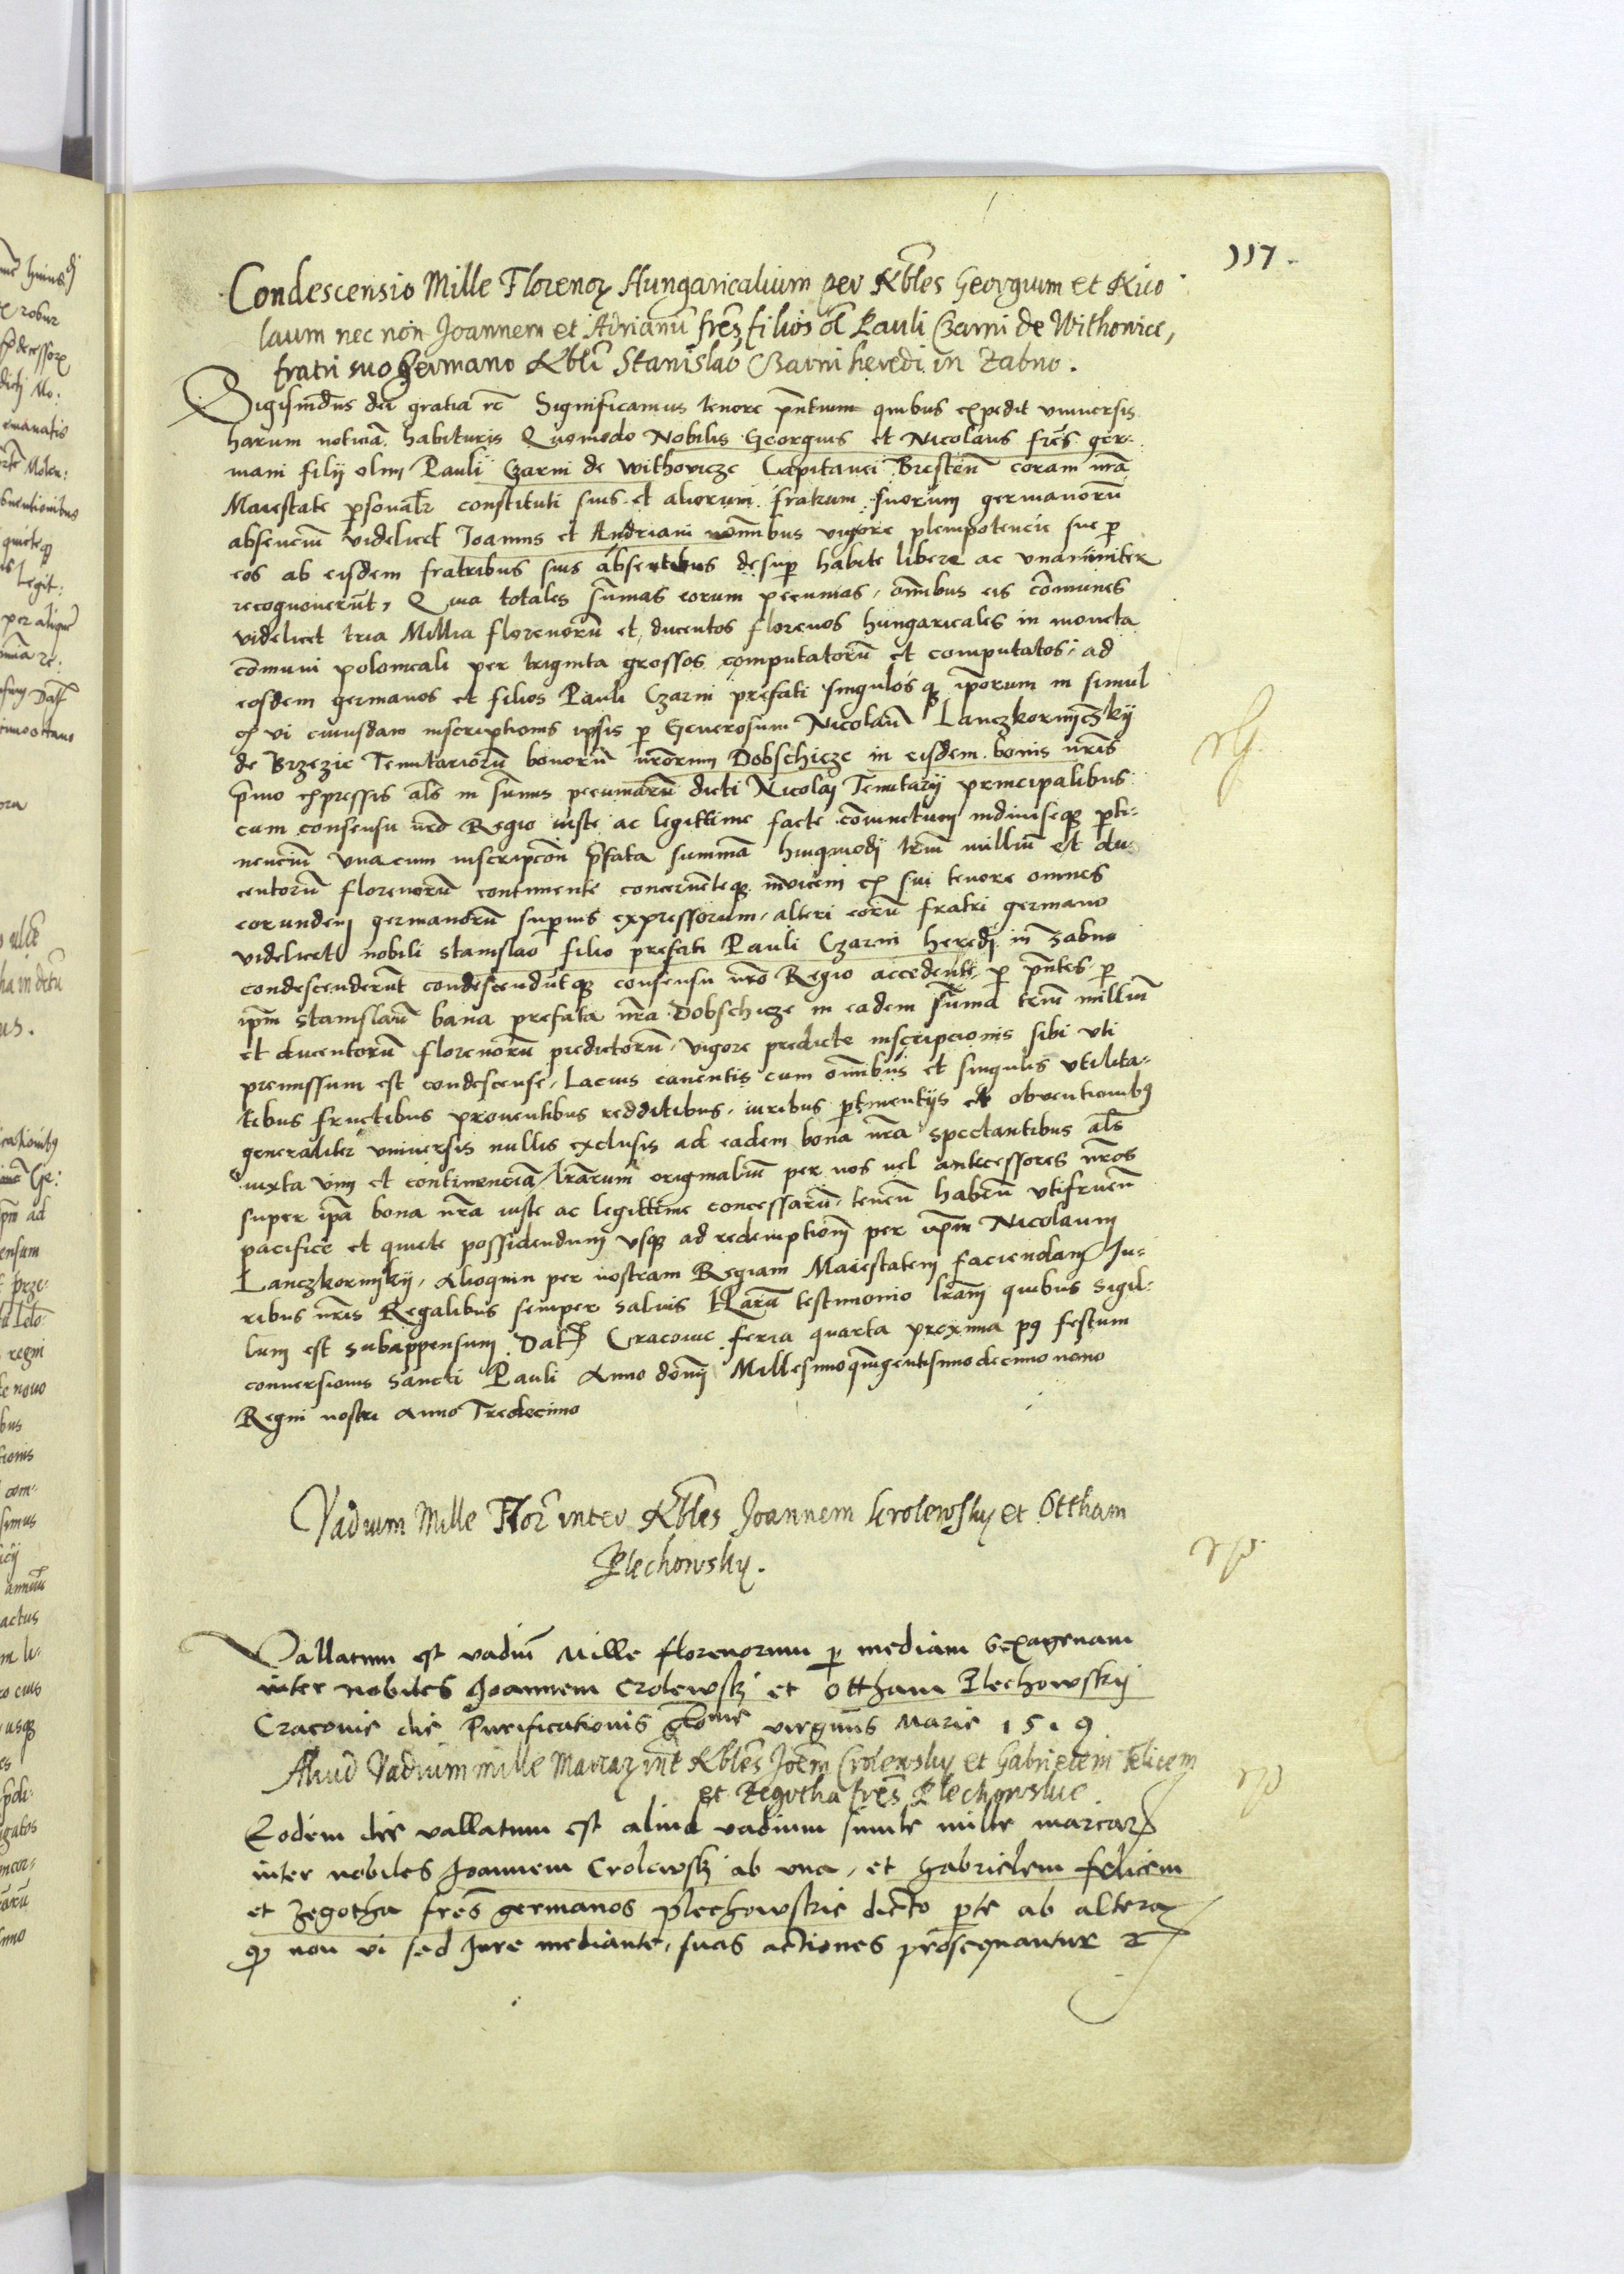 117.
Condescensio Mille Florenoꝝ Hungaricalium per Nbles Georgium et Nico
laum nec non Joannem et Adrianū fres filios ol Pauli Czarni de Withowice,
fratri suo germano Nbli Stanislao Czarni heredi in Zabno.
Sigismdus dei gratia rc Significamus tenore pntium quibus expedit vniuersis
harum noticiā habituris Quomodo Nobilis Georgius et Nicolaus fres ger-
mani filij olim Pauli Czarni de Withovicze Capitanei Bresten coram nra
Maiestate psonalr constituti suis et aliorum fratrum suorum germanorū
absenciū videlicet Joannis et Andriani nomibus vigore plenipotencie sue p
eos ab eisdem fratribus suis absentibus desup habite libere ac vnanimiter
recognouerūt, Quia totales sumas eorum pecunias, omibus eis comunes
videlicet tria Millia florenorū et ducentos florenos hungaricales in moneta
comuni polonicali per triginta grossos computatorū et computatos, ad
eosdem germanos et filios Pauli Czarni prefati singulos qꝫ iporum in simul
ex vi cuiusdam inscriptionis ipsis p Generosum Nicolaū Lanczkorunczkij
de Brzezie Tenutariorū bonorū nrorum Dobschicze in eisdem bonis nris
pmo expressis als in sumis pecuniarū dicti Nicolaj Tenutarij principalibus
cum consensu nro Regio iuste ac legittime facte coniunctum indiuiseqꝫ pti-
nenciū vnacum inscripcōn pfata summā huiqmodj triū milliū et du-
centorū florenorū continente concernenteqꝫ inuicem ex sui tenore omnes
eorundem germanorū supius expressorum, alteri eorū fratri germano
videlicet nobili stanislao filio prefati Pauli Czarni heredi in Zabno
condescenderūt condescendūtqꝫ consensu nro Regio accedente p pntes p
ipm stanislaū bona prefata nra Dobschicze in eadem suma triū milliū
et ducentorū florenorū predictorū, vigore predicte inscripcionis sibi vti
premissum est condescense, Lacius canentis cum omibus et singulis vtilita-
tibus fructibus prouentibus redditibus, iuribus ptinentijs et obventionibꝯ
generaliter vniuersis nullis exclusis ad eadem bona nra spectantibus als
iuxta vim et continenciā lrarum originaliū per nos uel antecessores nros
super ipa bona nra iuste ac legittime concessarū, tenen haben vtifruen
pacifice et quiete possidendum vsqꝫ ad redemptionē per ipm Nicolaum
Lanczkorunskij, Alioquin per nostram Regiam Maiestatem faciendam Ju-
ribus nris Regalibus semper saluis Harū testimonio lram quibus sigil-
lum est subappensum. Dat Cracouie feria quarta proxima pꝯ festum
conuersionis sancti Pauli Anno domi Millesimoquingentesimodecimo nono
Regni nostri Anno Tredecimo
Vadium Mille Flor inter Nbles Joannem Crolewsky et Ottham
Plechowsky.
Vallatum est vadiū Mille florenorum p mediam sexagenam
inter nobiles Joannem Crolewsk et Ottham Plechowskij
Cracouie die Purificationis glome virginis Marie 1519
Aliud Vadium mille Marcaꝝ int Nbles Joēm Crolewsky et Gabrielem Felicem
et Zegotha fres Plechowskie.
Eodem die vallatum est aliud vadium simile mille marcarꝝ
inter nobiles Joannem Crolewsk ab vna, et Gabrielem felicem
et Zegotha fres germanos Plechowskie dicto pte ab altera
qꝫ non vi sed Jure mediante, suas actiones prosequantur rc